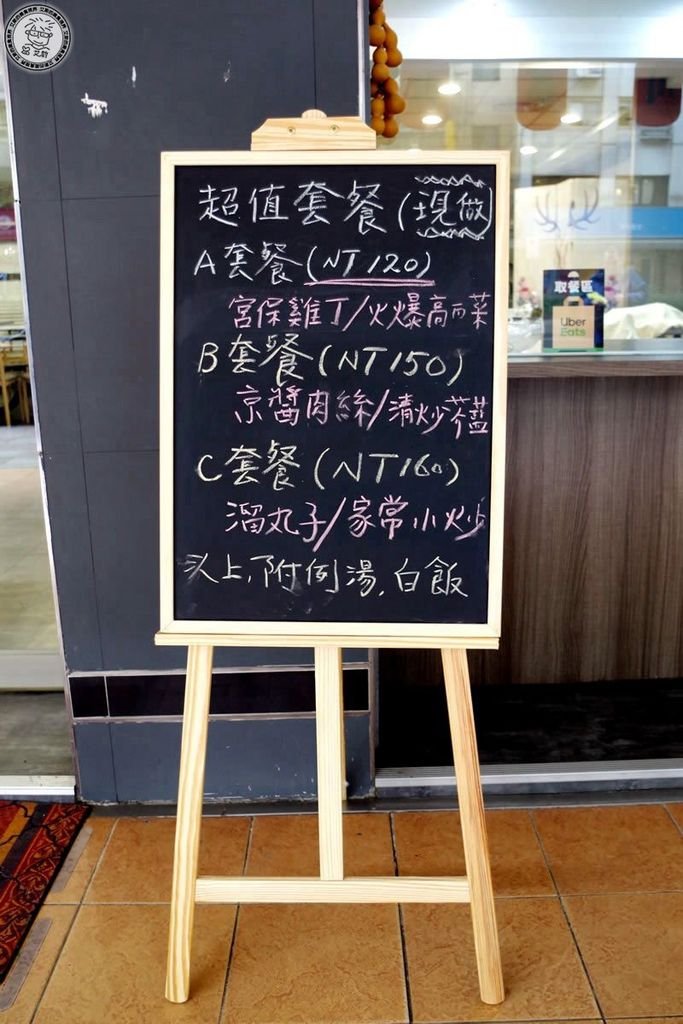 超值套餐(現做)
A套餐(NT120)
宮保雞丁/火爆高麗菜
B套餐(NT150)
京醬肉絲/清炒芥藍
C套餐(NT160)
溜丸子/家常小炒
以上,附例湯,白飯
取餐區
Uber
Eats